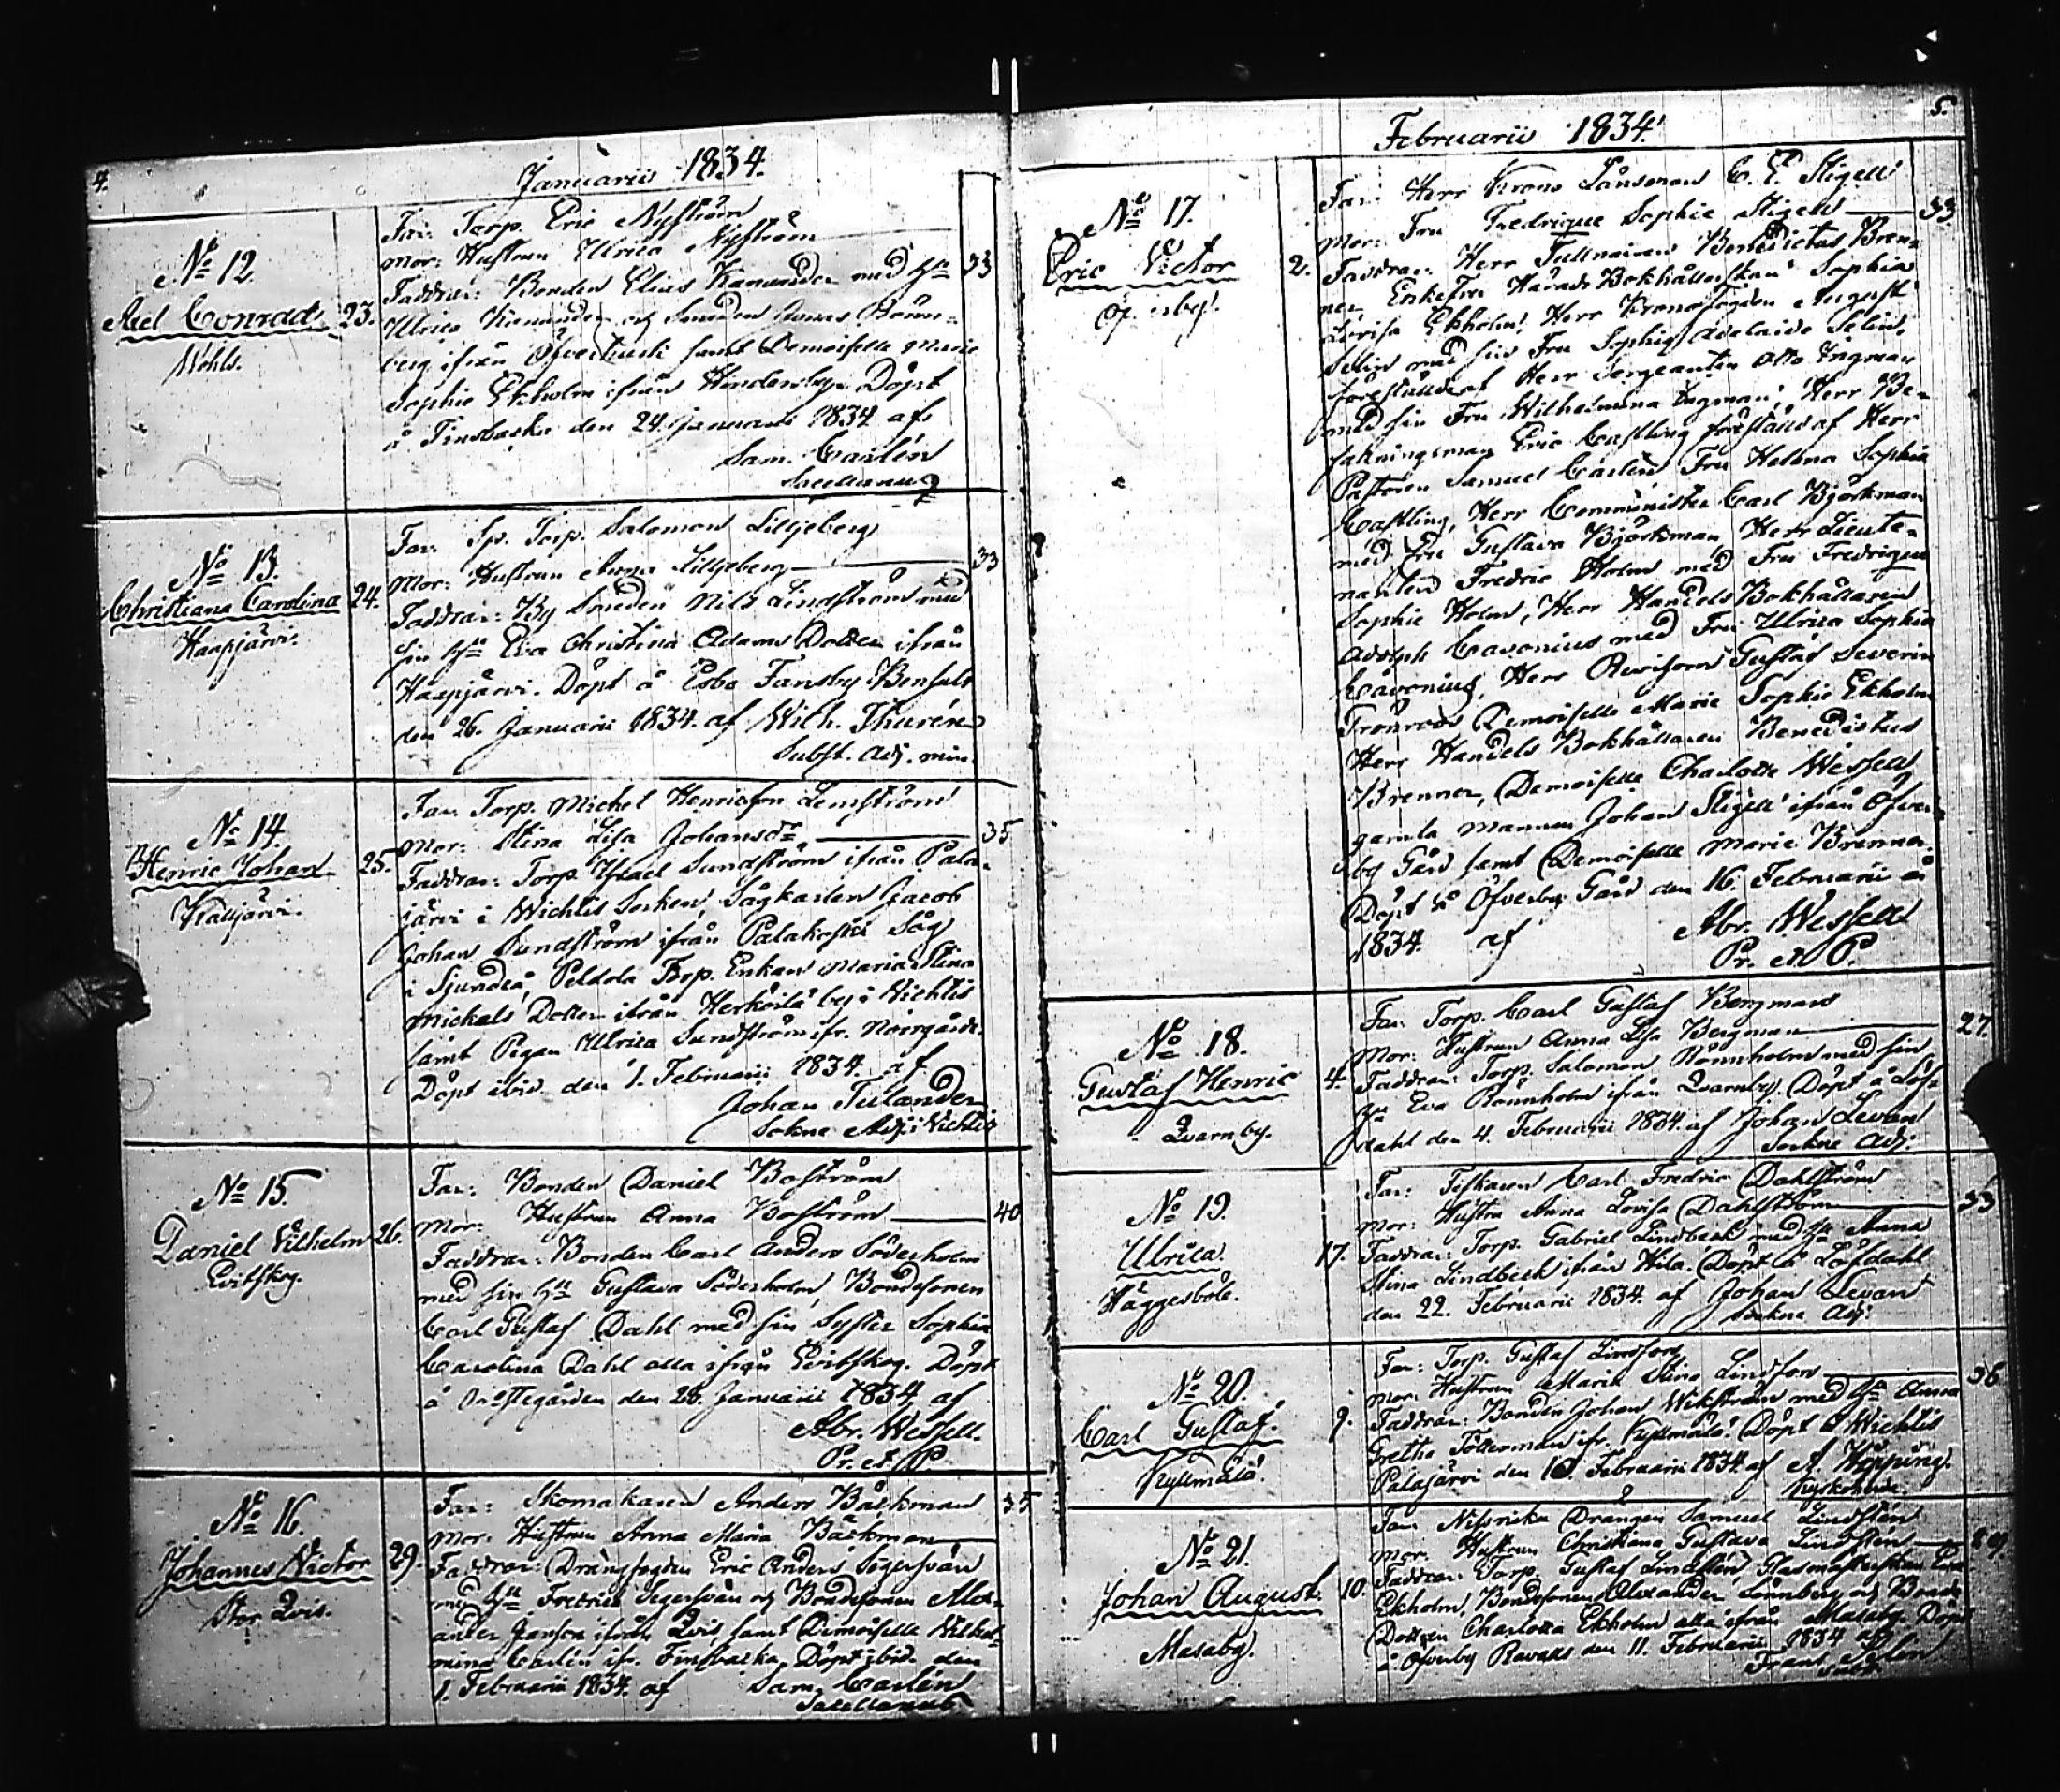 4.
Januarii 1834.
No 12.
Axel Conrad
Wohls.
23.
Far: Torp. Eric Nyström
Mor: Hustrun Ulrica Nyström
33
Faddrar: Bonden Elias Kananden med Hu
Ulrica Kananden och Smeden Jonas
berg ifrån samt Demoiselle Marie
Sophie Ekholm ifrån Hindersby. Döpt
å Finsbacka den 24 Januarii 1834 af
Sam. Carlén
Sacellanus
No 13.
Christiana Carolina
Haapjärvi.
24.
Far: Sp. Torp. Salomon Liljeberg
Mor: Hustrun Anna Liljeberg
33
Faddrar: By Smeden Nils Lindström med
sin Hu Eva Christina Adams Dotter ifrån
Haapjärvi. Döpt å Esbo Fansby
den 26. Januarii 1834. af Wilh. Thurén
Subst. Adj. min.
No 14.
Henric Johan
Kalljärvi.
25.
Far: Torp. Michel Henricson Lemström
Mor: Stina Lisa Johansdr
35
Faddrar: Torp. Israel Sundström ifrån Pala-
järvi i Wichtis Socken Sågkarlen Jacob
Johan Sundström ifrån Palakoski Såg
i Sjundeå, Peldola Torp. Enkan Maria Stina
Mickels Dotter ifrån Herköilä by i Wichtis
samt Pigan Ulrica Sundström ifr. Norrgårds.
Döpt ibid. den 1. Februarii 1834. af
Johan Tulander
Sokne Adj. i Wichtis
No 15.
Daniel Vilhelm
Evitskog.
26.
Far: Bonden Daniel Boström
Mor: Hustrun Anna Boström
40
Faddrar: Bonden Carl Anders Söderholm
med sin Hu Gustava Söderholm, Bondsonen
Carl Gustaf Dahl med sin Syster Sophia
Carolina Dahl alla ifrån Evitskog. Döpt
å Prestegården den 28. Januarii 1834 af
Abr. Wessell.
Pr. et P.
No 16.
Johannes Victor
Stor Qvis.
29.
Far: Skomakaren Anders Bäckman
35
Mor: Hustrun Anna Maria Bäckman
Faddrar: Drängfogden Eric Anders Segersvän
med Hu Fredrica Segersvän och Bondsonen Alex-
ander Janson ifrån Qvis, samt Demoiselle Wilhel-
mina Carlén ifr. Finsbacka, Döpt ibid. den
1. Februarii 1834. af Sam. Carlén
Sacellanus
5.
Februarii 1834.
No 17.
Eric Victor
2.
Far: Herr Krono Länsman C. E. Stigell
Mor: Fru Fredrique Sophie Stigell
33.
Faddrar: Herr Tullnären Benedictus Bren-
ner, Enkefru Härads Bokhållerskan Sophia
Lovisa Ekholm, Herr Kronofogden August
Selin med sin Fru Sophie Adelaide Selin,
föreställde af Herr Sergeanten Otto Ingman
med sin Fru Wilhelmina Ingman; Herr Be-
fahningsman Eric Castling föreställd af Herr
Pastoren Samuel Carlén, Fru Helena Sophia
Castling, Herr Comminister Carl Björkman
med Fru Gustava Björkman, Herr Lieute-
nanten Fredric Holm med Fru Fredrique
Sophie Holm, Herr Handels Bokhållaren
Adolph Cavonius med Fru Ulrica Sophia
Cavonius, Herr Revisorn Gustaf Severin
Demoiselle Marie Sophie Ekholm
Herr Handels Bokhållaren Benedictus
Brenner, Demoiselle Charlotte Wessell
gamla Mannen Johan Stigell ifrån Öfver-
by Gård samt Demoiselle Marie Brenner.
Döpt å Öfverby Gård den 16. Februarii år
1834. af Abr. Wessell
Pr. et P.
No 18.
Gustaf Henric
Qvarnby.
4.
Far: Torp. Carl Gustaf Bergman
Mor: Hustrun Anna Lisa Bergman
27.
Faddrar: Torp. Salomon Rönnholm med sin
Hu Eva Rönnholm ifrån Qvarnby. Döpt å Löf-
dahl den 4. Februarii 1834. af Johan Levan
Sockne Adj.
No 19.
Ulrica.
Häggesböle.
17.
Far: Fiskaren Carl Fredric Dahlström
Mor: Hustru Anna Lovisa Dahlström
33
Faddrar: Torp. Gabriel Lindbeck med Hu Anna
Stina Lindbeck ifrån Hila. Döpt å Löfdahl
den 22. Februarii 1834. af Johan Levan
Sockne Adj.
No 20.
Carl Gustaf.
Kyllmälä.
9.
Far: Torp. Gustaf Lindfors
Mor: Hustrun Maria Stina Lindfors
36
Faddrar: Bonden Johan Wikström med Hu Anna
Gretha Töllerman ifr. Kyllmälä. Döpt å Wichtis
Palajärvi den 10. Februarii 1834. af A. Hipping.
Kyrkoherde.
No 21.
Johan August.
Masaby.
10.
Far: Drängen Samuel Lindstén
Mor: Hustrun Christiana Gustava Lindstén
29.
Faddrar: Torp. Gustaf Lindstén, Glasmästerskan Eva
Ekholm, Bondsonen Alexander Lönnberg och Bonde
Dottren Charlotta Ekholm alla ifrån Masaby. Döpt
å Öfverby Ravals den 11. Februarii 1834 af
Frans Selin